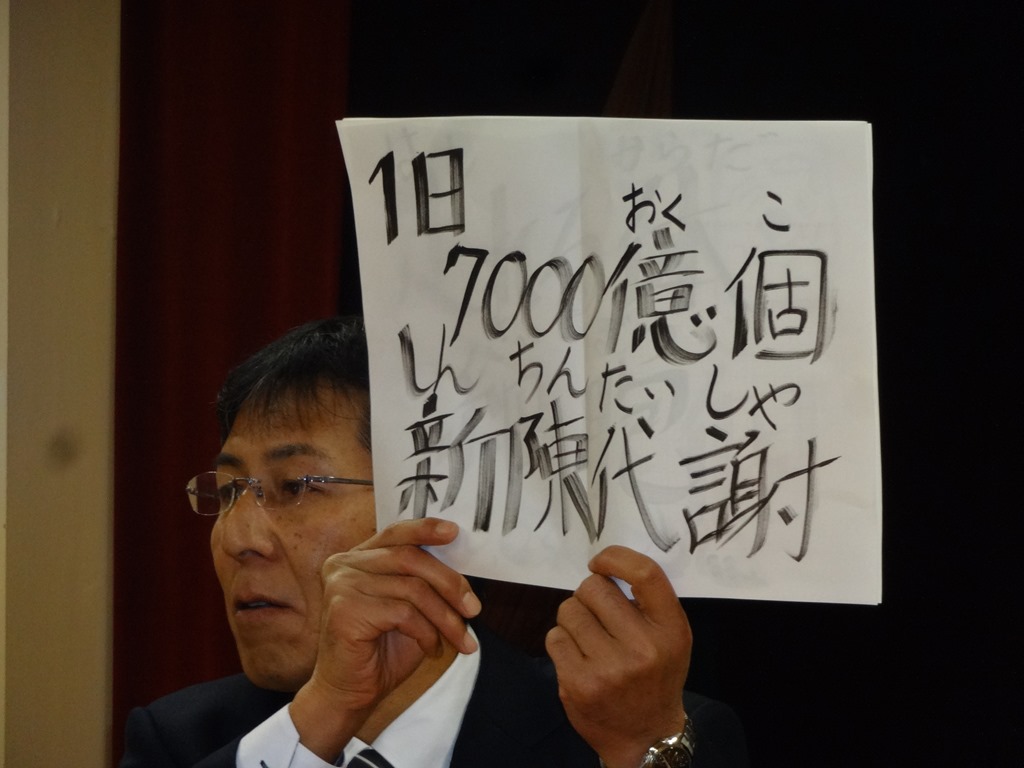 1日
おく こ
7000億個
しん ちん たい しゃ
新陳代謝